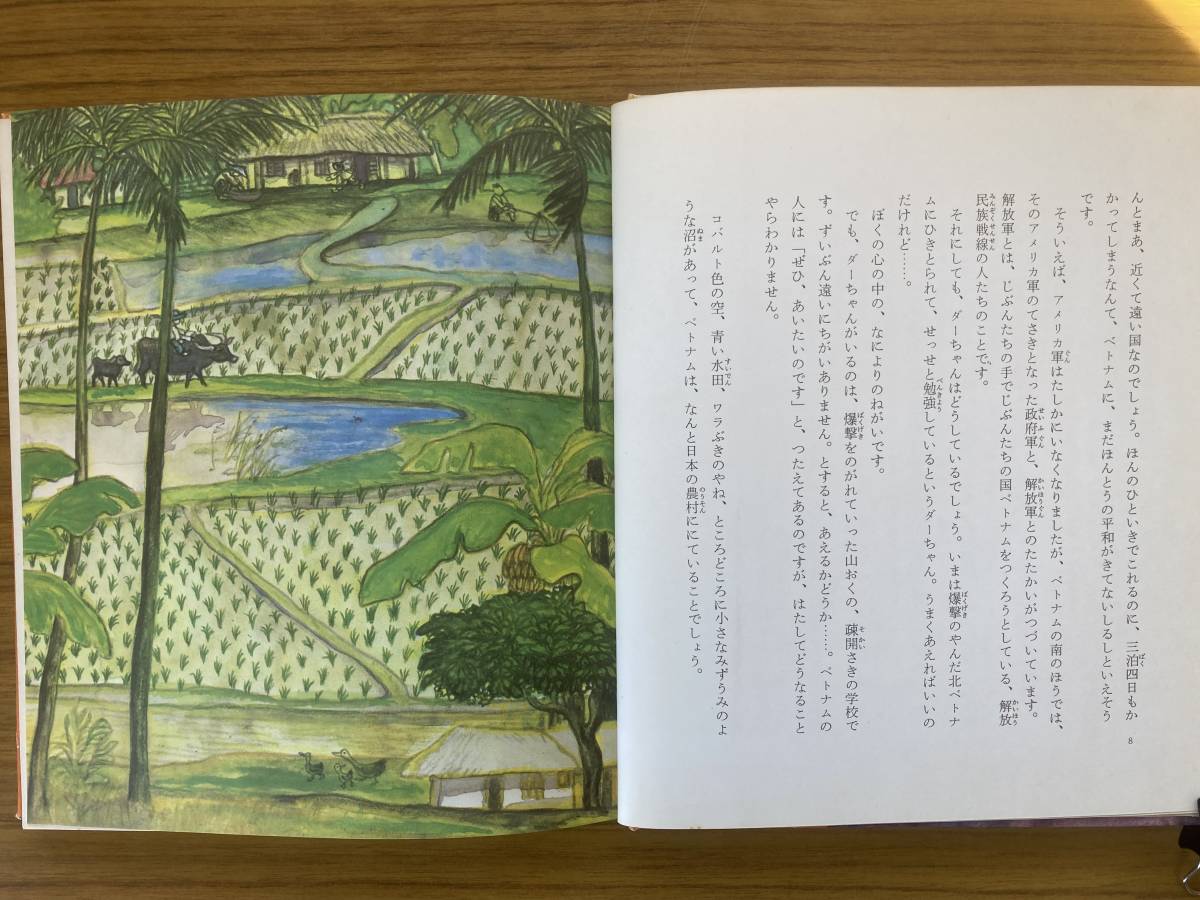 んとまあ、近くて遠い国なのでしょう。ほんのひといきでこれるのに、三泊四日もか
かってしまうなんて、ベトナムに、まだほんとうの平和がきてないしるしといえそう
です。
そういえば、アメリカ軍はたしかにいなくなりましたが、ベトナムの南のほうでは、
そのアメリカ軍のてさきとなった政府軍と、解放軍とのたたかいがつづいています。
解放軍とは、じぶんたちの手でじぶんたちの国ベトナムをつくろうとしている、解放
民族戦線の人たちのことです。
それにしても、ダーちゃんはどうしているでしょう。いまは爆撃のやんだ北ベトナ
ムにひきとられて、せっせと勉強しているというダーちゃん。うまくあえればいいの
だけれど……。
ぼくの心の中の、なによりのねがいです。
でも、ダーちゃんがいるのは、爆撃をのがれていった山おくの、疎開さきの学校で
す。ずいぶん遠いにちがいありません。とすると、あえるかどうか……。ベトナムの
人には「ぜひ、あいたいのです」と、つたえてあるのですが、はたしてどうなること
やらわかりません。
コバルト色の空、青い水田、ワラぶきのやね、ところどころに小さなみずうみのよ
うな沼があって、ベトナムは、なんと日本の農村ににていることでしょう。
8